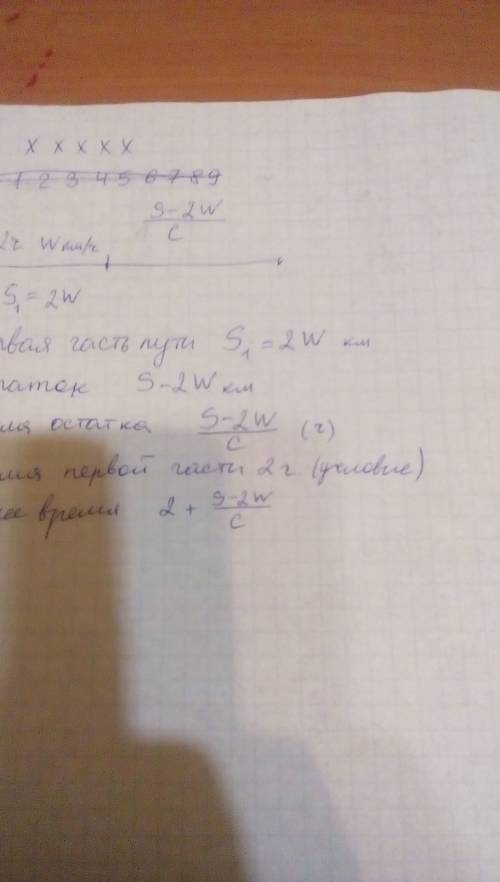 x x x x x
1 2 3 4 5 6 7 8 9
S-2W
C
2ч W км/ч
S₁ = 2W
рвая часть пути S₁ = 2W км
таток S-2W км
мя остатка S-2W/C (ч)
емя первой части 2ч (условие)
ее время 2 + S-2W/C